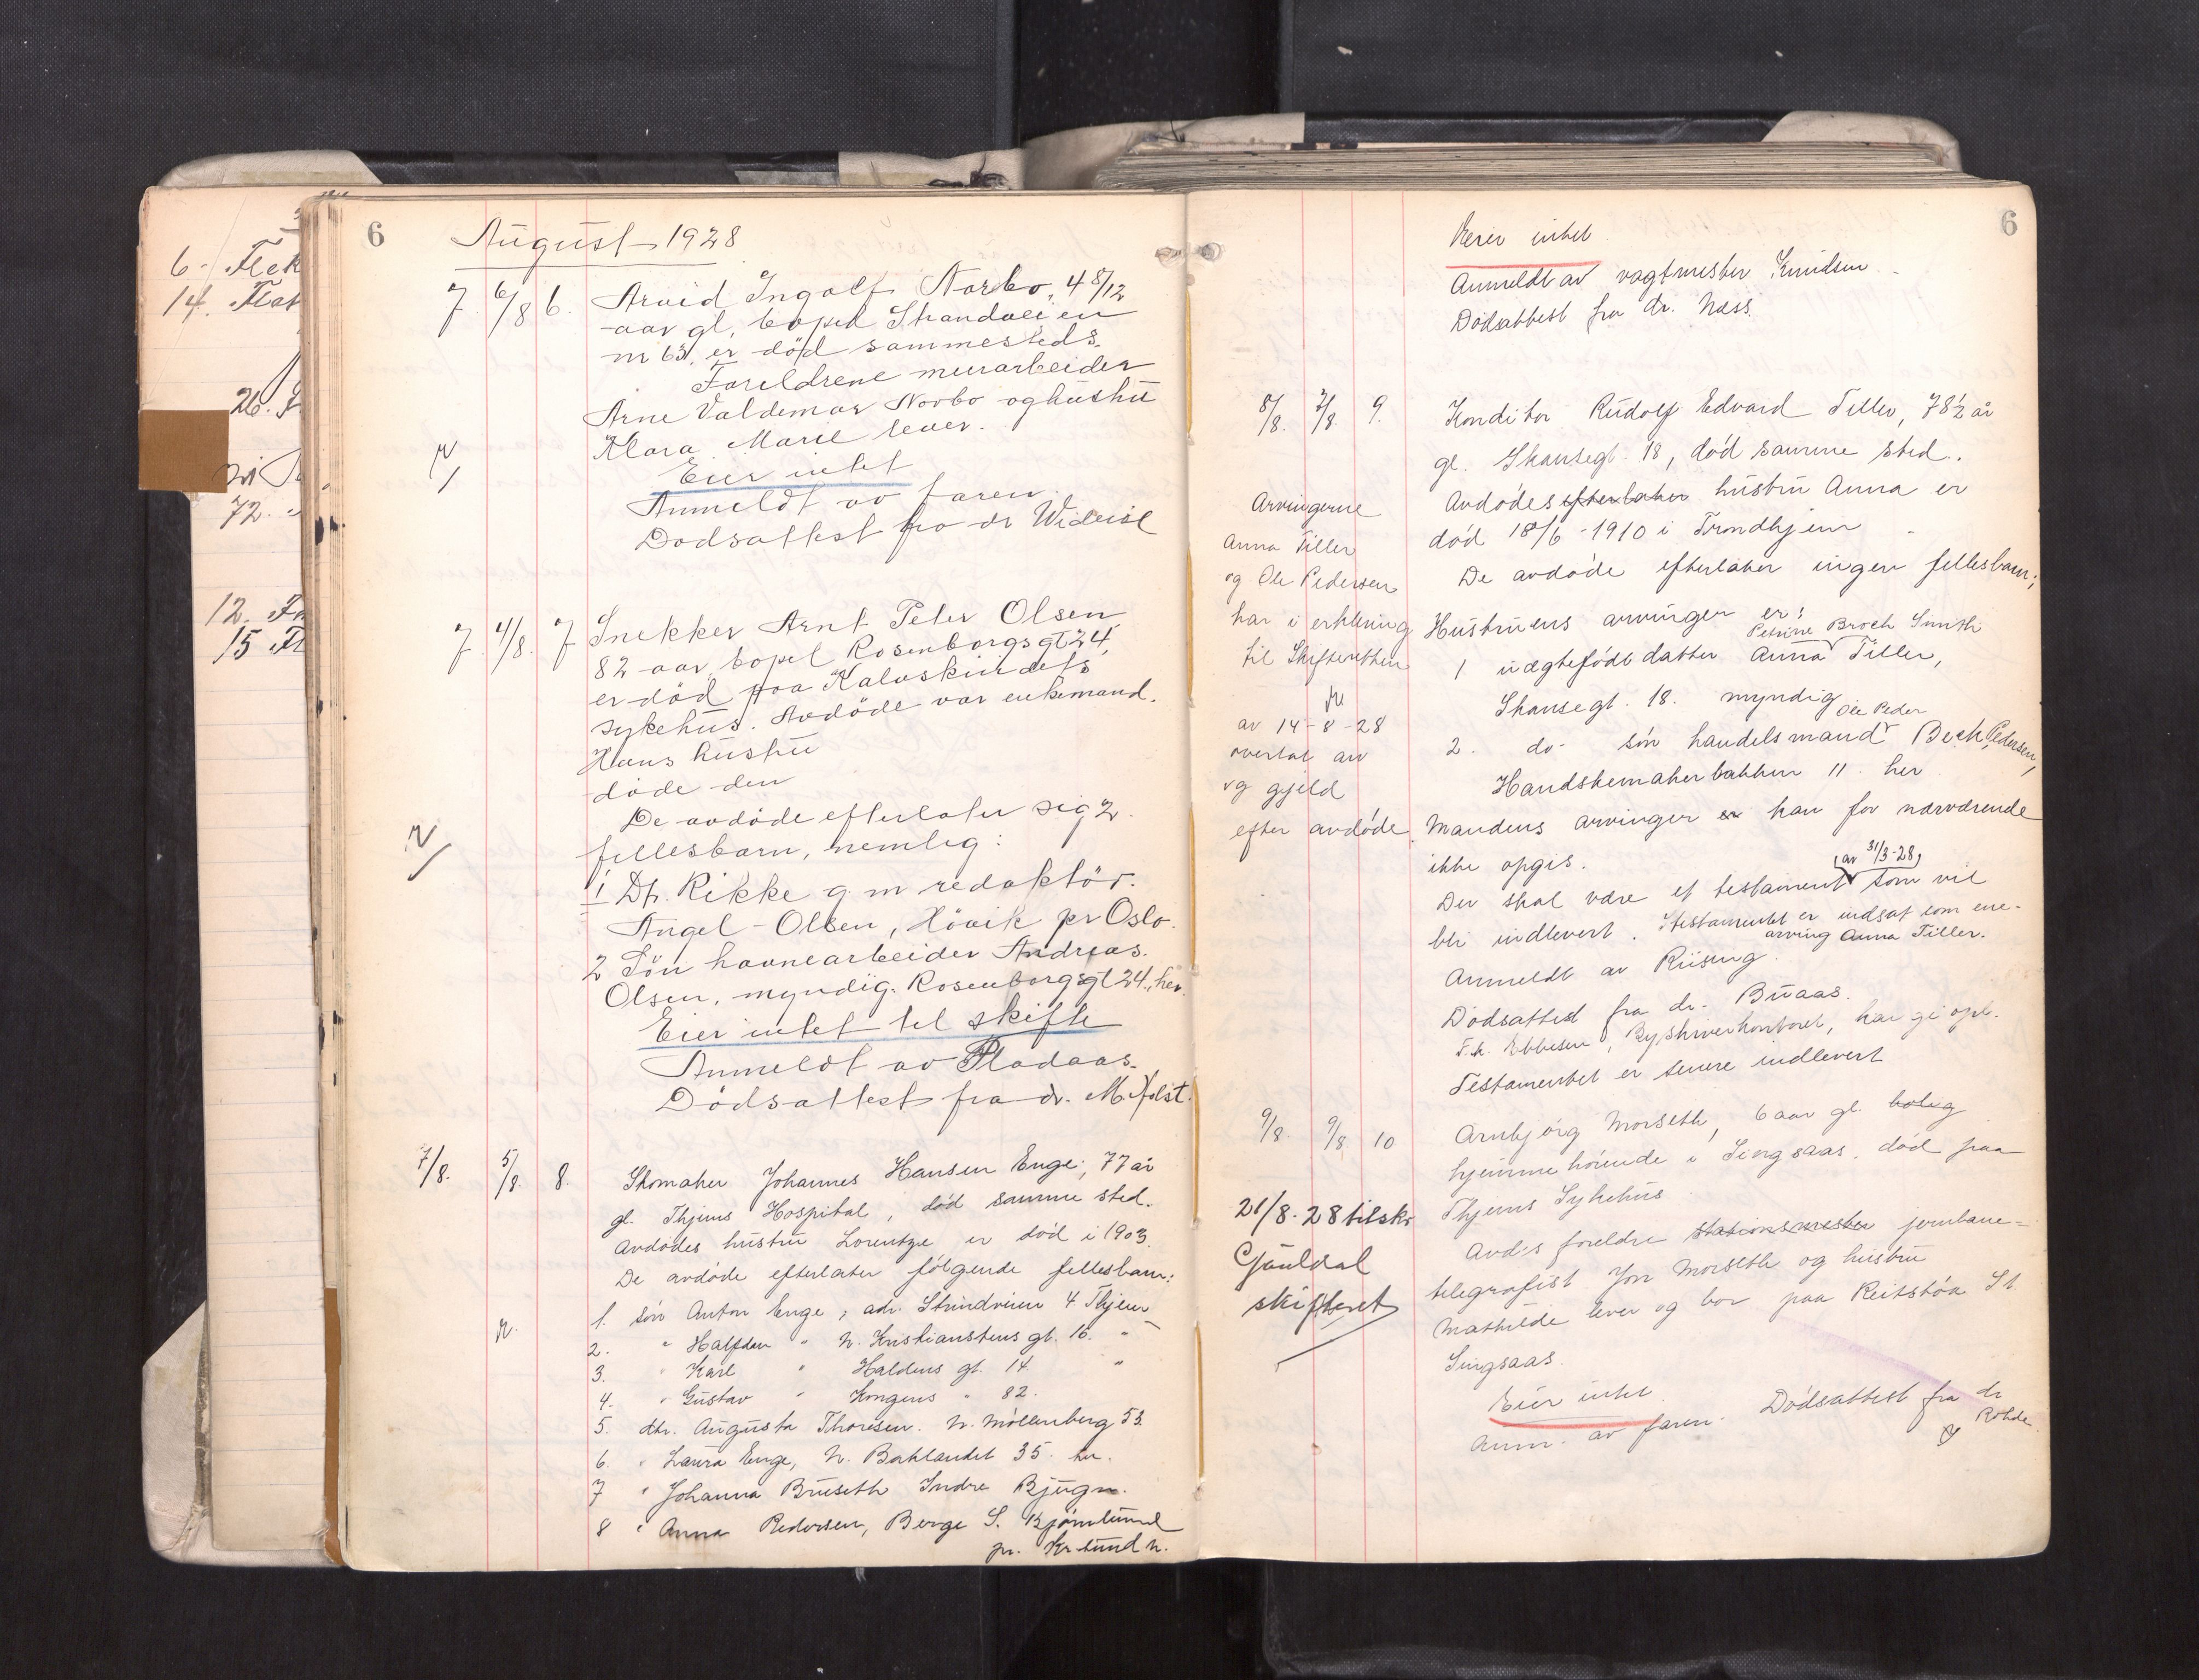 6
August 1928
7. 6/8 6. Arvid Ingolf Norbo, 4 8/12
aar gl. bopæl Strandveien
nr 63, er död sammesteds.
Foreldrene murarbeider
Arne Valdemar Norbo og hustru
Klara Marie lever.
Eier intet
Anmeldt av faren
Dödsattest fra dr
7. 4/8. 7 Snekker Arnt Peter Olsen
82 aar, bopel Rosenborgsgt 24,
er död paa Kalvskindets
sykehus. Avdöde var enkemand.
Hans hustru
döde den
De avdöde efterlater sig 2
fellesbarn, nemlig:
1 Dt. Rikke g. m redaktör.
Angel-Olsen, Hövik pr Oslo.
2 Sön havnearbeider Andreas.
Olsen, myndig. Rosenborgsgt 24, her.
Eier intet til skifte
Anmeldt av
Dödsattest fra dr. M. Holst.
7/8. 5/8. 8. Skomaker Johannes Hansen Enge, 77 år
gl. Thjems Hospital, död samme sted.
Avdödes hustru Lorentze er död i 1903.
De avdöde efterlater fölgende fellesbarn:
1. sön Anton Enge, adr. Strindveien 4 Thjem
2. " Halfdan " N. Kristianstens gt. 16. "
3. " Karl " Haldens gt. 14. "
4. " Gustav " Kongens " 82.
5. dtr. Augusta Thoresen. N. Möllenberg 53
6. " Laura Enge, N. Baklandet 35. her.
7 " Johanna Bruseth Indre Bjugn.
8 " Anna Pedersen, Berge S. Bjömlund
pr. Kr.sund N.
6
Eier intet
Anmeldt av vagtmester Knudsen
Dödsattest fra dr. Næss.
8/8. 7/8. 9. Konditor Rudolf Edvard Tiller, 78½ år
gl. Skansegt. 18, död samme sted.
Avdödes efterlater hustru Anna er
död 18/6 - 1910 i Trondhjem
De avdöde efterlater ingen fellesbarn;
Hustruens arvinger er:
Petrine Broch Smith
1 uægtefödt datter Anna Tiller,
Skansegt. 18. myndig
Ole Peder
2. do. sön handelsmand Bech Pedersen,
Handskemakerbakken 11. her
Mandens arvinger er kan for nærværende
ikke opgis.
av 31/3-28,
Der skal være et testament som vil
bli indlevert. I testamentet er indsat som ene-
arving Anna Tiller.
Anmeldt av Riising
Dödsattest fra dr. Buaas.
F.k. Ebbesen, Byskriverkontoret, har gi opl.
Testamentet er senere indlevert
Arvingerne
Anna Tiller
og Ole Pedersen
har i erklæring
til Skifteretten
av 14-8-28
overtat arv
og gjeld
efter avdöde.
9/8. 9/8 10 Arnbjörg Morseth, 6 aar gl. bolig
hjemmehörende i Singsaas, död paa
Thjems Sykehus
Avd's foreldre stationsmester jernbane-
telegrafist Jon Morseth og hustru
Mathilde lever og bor paa Reitstöa St
Singsaas.
Eier intet.
Anm. av faren. Dödsattest fra dr
Rohde
21/8-28 tilskr
Gauldal
skifteret
6.
14.
26.
72.
12.
15